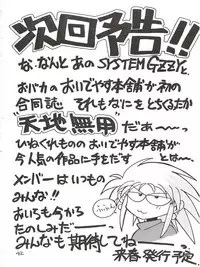 次回予告!!
な、なんと あの SYSTEM GZZYと、
おバカの おいでやす本舗が初の
合同誌 それもなにをとちくるたか
"天地無用"だぁーっ
ひねくれものの おいでやす本舗が
今人気の作品に手をだす とは〜、
メンバーはいつもの
みんな!!
おいらも今から
たのしみだーっ
みんなも 期待してねーっ
来春 発行予定